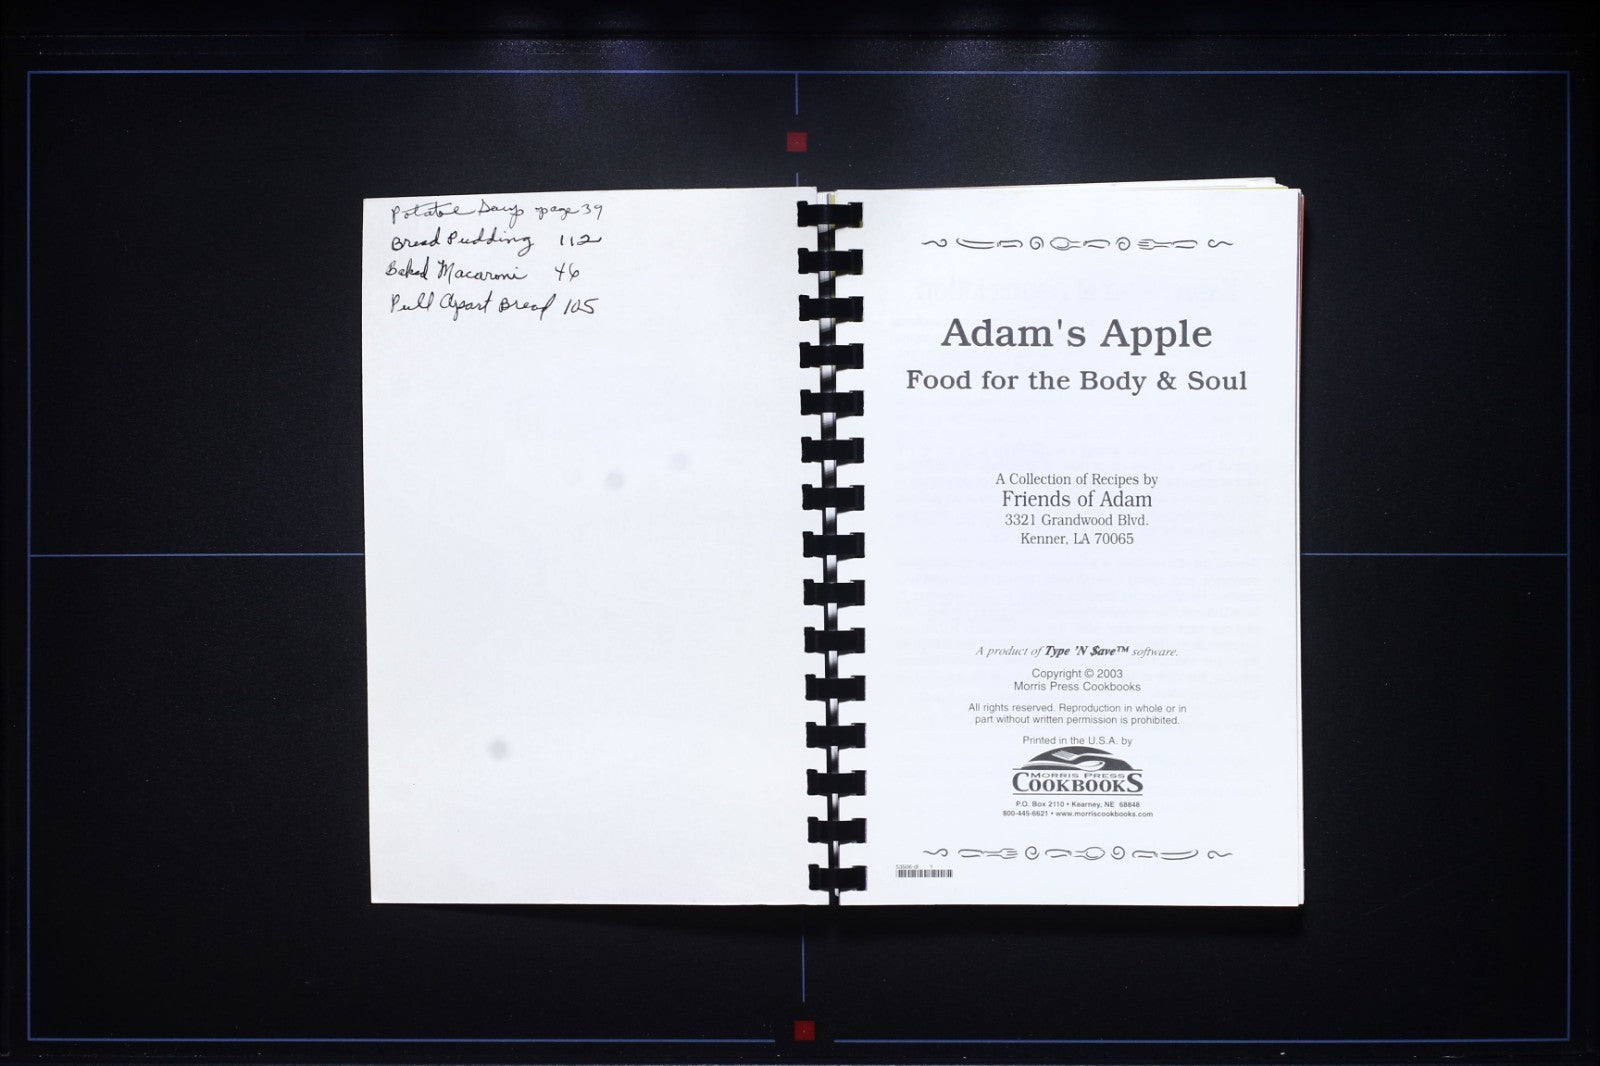 Potatoe Soup page 39
Bread Pudding 112
Baked Macaroni 46
Pull Apart Bread 105
Adam's Apple
Food for the Body & Soul
A Collection of Recipes by
Friends of Adam
3321 Grandwood Blvd.
Kenner, LA 70065
A product of Type 'N $ave™ software.
Copyright © 2003
Morris Press Cookbooks
All rights reserved. Reproduction in whole or in
part without written permission is prohibited.
Printed in the U.S.A. by
MORRIS PRESS
COOKBOOKS
P.O. Box 2110 • Kearney, NE 68848
800-445-6621 • www.morriscookbooks.com